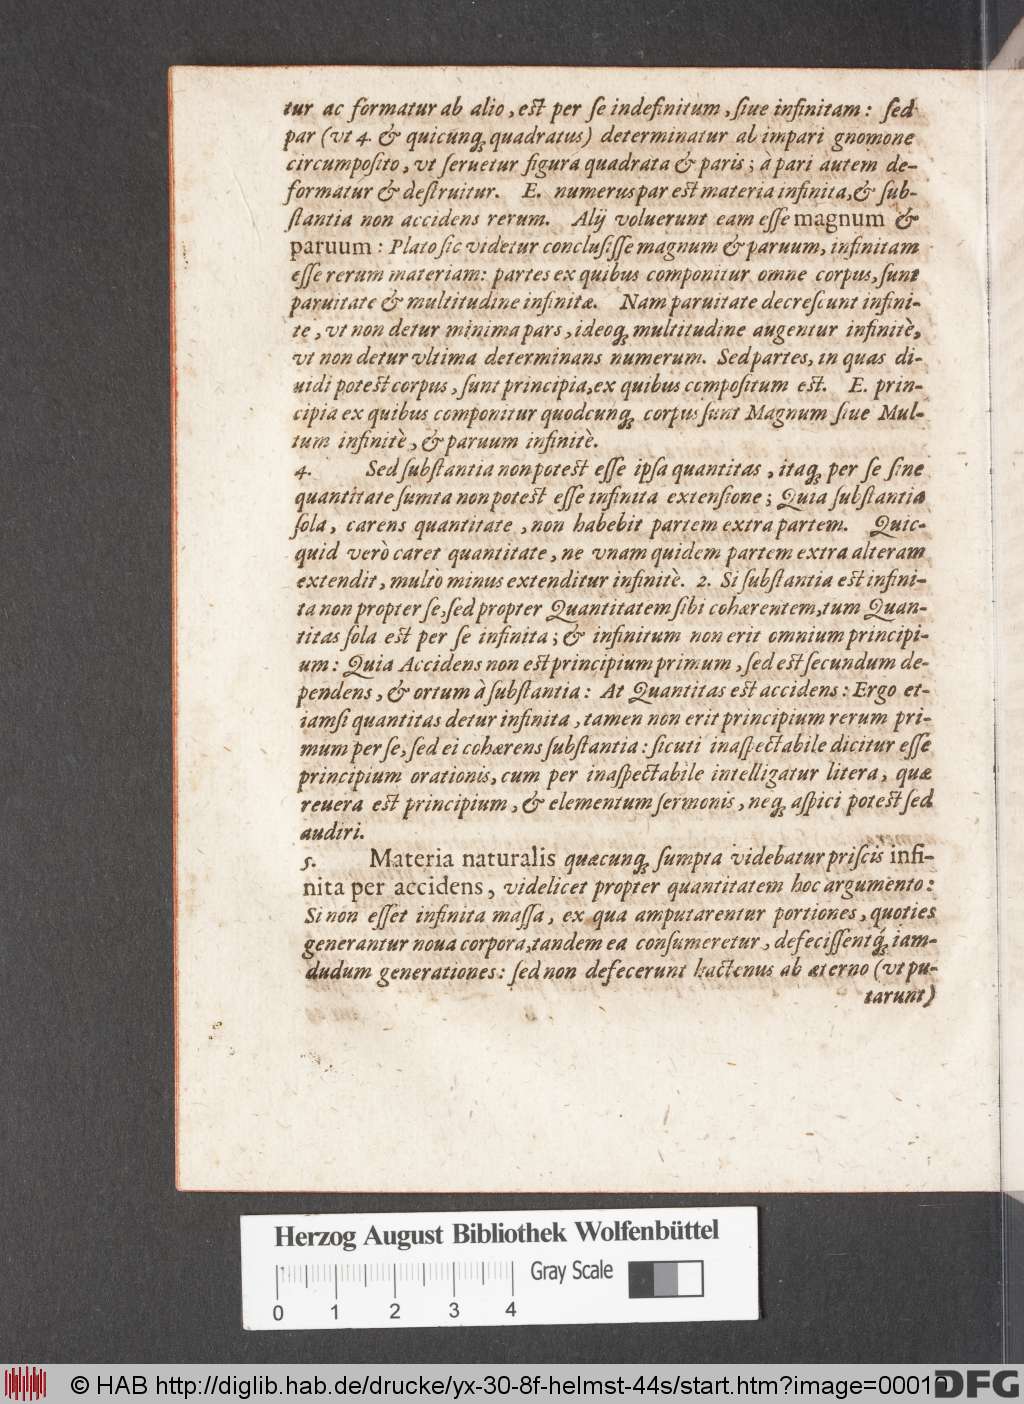 tur ac formatur ab alio, est per se indefinitum, siue infinitam: sed
par (vt 4. & quicunq; quadratus) determinatur ab impari gnomone
circumposito, vt seruetur figura quadrata & paris; à pari autem de-
formatur & destruitur. E. numerus par est materia infinita, & sub-
stantia non accidens rerum. Alij voluerunt eam esse magnum &
paruum: Plato sic videtur conclusisse magnum & paruum, infinitam
esse rerum materiam: partes ex quibus componitur omne corpus, sunt
paruitate & multitudine infinitæ. Nam paruitate decrescunt infini-
te, vt non detur minima pars, ideoq; multitudine augentur infinitè,
vt non detur vltima determinans numerum. Sed partes, in quas di-
uidi potest corpus, sunt principia, ex quibus compositum est. E. prin-
cipia ex quibus componitur quodcunq; corpus sunt Magnum siue Mul-
tum infinitè, & paruum infinitè.
4. Sed substantia non potest esse ipsa quantitas, itaq; per se sine
quantitate sumta non potest esse infinita extensione; Quia substantia
sola, carens quantitate, non habebit partem extra partem. Quic-
quid verò caret quantitate, ne vnam quidem partem extra alteram
extendit, multò minus extenditur infinitè. 2. Si substantia est infini-
ta non propter se, sed propter Quantitatem sibi cohærentem, tum Quan-
titas sola est per se infinita; & infinitum non erit omnium principi-
um: Quia Accidens non est principium primum, sed est secundum de-
pendens, & ortum à substantia: At Quantitas est accidens: Ergo et-
iamsi quantitas detur infinita, tamen non erit principium rerum pri-
mum per se, sed ei cohærens substantia: sicuti inaspectabile dicitur esse
principium orationis, cum per inaspectabile intelligatur litera, quæ
reuera est principium, & elementum sermonis, neq; aspici potest sed
audiri.
5. Materia naturalis quæcunq; sumpta videbatur priscis infi-
nita per accidens, videlicet propter quantitatem hoc argumento:
Si non esset infinita massa, ex qua amputarentur portiones, quoties
generantur noua corpora, tandem ea consumeretur, defecissentq́; iam-
dudum generationes: sed non defecerunt hactenus ab æterno (vt pu-
tarunt)
Herzog August Bibliothek Wolfenbüttel
Gray Scale
0 1 2 3 4
© HAB http://diglib.hab.de/drucke/yx-30-8f-helmst-44s/start.htm?image=00010
DFG